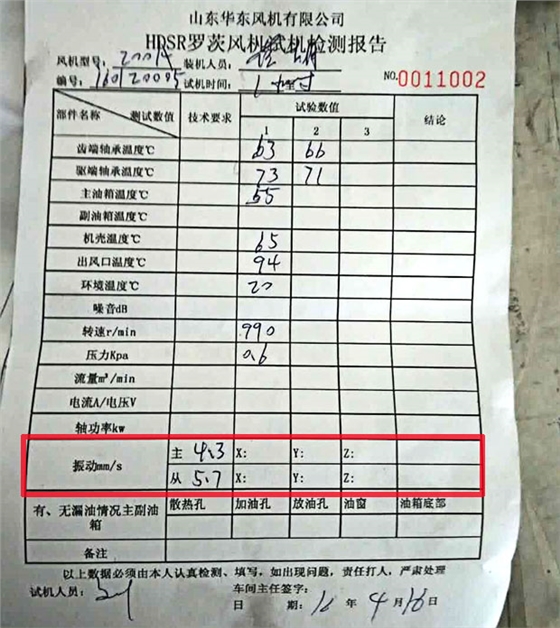 山东华东风机有限公司
HDSR罗茨风机试机检测报告
风机型号: 200A 装机人员:
编号: 160120095 试机时间: 1小时
NO.0011002
部件名称 测试数值 技术要求 试验数值 结论
1 2 3
齿端轴承温度℃ 63 66
驱端轴承温度℃ 73 71
主油箱温度℃ 65
副油箱温度℃
机壳温度℃ 65
出风口温度℃ 94
环境温度℃ 20
噪音dB
转速r/min 990
压力Kpa 0.6
流量m³/min
电流A/电压V
轴功率kw
振动mm/s 主 4.3 X: Y: Z:
从 5.7 X: Y: Z:
有、无漏油情况主副油箱 散热孔 加油孔 放油孔 油窗 油箱底部
备注
以上数据必须由本人认真检测、填写,如出现问题,责任打人,严肃处理
试机人员: 车间主任签字:
日 期: 16 年 4 月 16 日